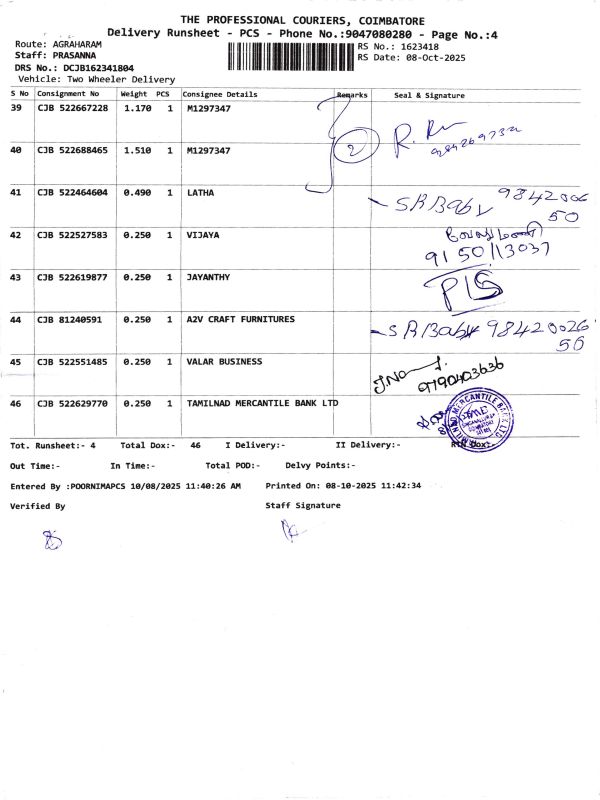 THE PROFESSIONAL COURIERS, COIMBATORE
Delivery Runsheet - PCS - Phone No.:9047080280 - Page No.:4
Route: AGRAHARAM
Staff: PRASANNA
DRS No.: DCJB162341804
Vehicle: Two Wheeler Delivery
RS No.: 1623418
RS Date: 08-Oct-2025
S No Consignment No Weight PCS Consignee Details Remarks Seal & Signature
39 CJB 522667228 1.170 1 M1297347
40 CJB 522688465 1.510 1 M1297347 2
41 CJB 522464604 0.490 1 LATHA SRBaby 9842006
50
42 CJB 522527583 0.250 1 VIJAYA
91 50113037
43 CJB 522619877 0.250 1 JAYANTHY
44 CJB 81240591 0.250 1 A2V CRAFT FURNITURES SRBaby 98420026
50
45 CJB 522551485 0.250 1 VALAR BUSINESS
9790403636
46 CJB 522629770 0.250 1 TAMILNAD MERCANTILE BANK LTD
Tot. Runsheet:- 4 Total Dox:- 46 I Delivery:- II Delivery:-
Out Time:- In Time:- Total POD:- Delvy Points:-
Entered By :POORNIMAPCS 10/08/2025 11:40:26 AM Printed On: 08-10-2025 11:42:34
Verified By Staff Signature